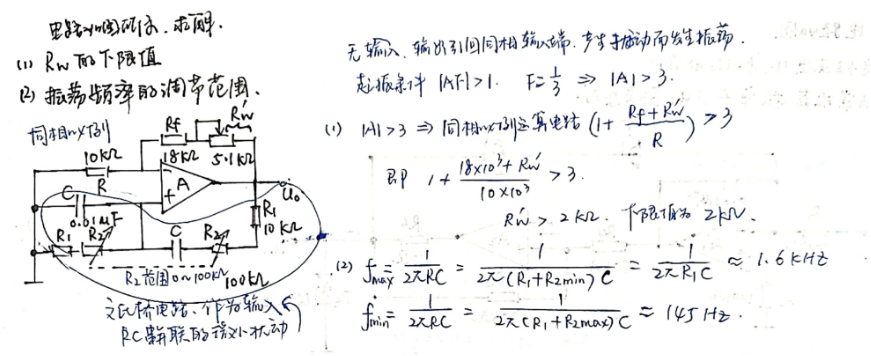 电路如图所示,求解:
(1) Rw的下限值
(2) 振荡频率的调节范围.
同相比例
Rf
R'w
10kΩ
R
18kΩ
5.1kΩ
C
A
u₀
0.01μF
R₁
10kΩ
R₁
R₂
C
R₂
R₂范围0~100kΩ
100kΩ
文氏桥电路,作为输入
RC串联的微小扰动
无输入,输出引回同相输入端,产生扰动而发生振荡.
起振条件 |AF|>1. F=1/3 ⇒ |A|>3.
(1) |A|>3 ⇒ 同相比例运算电路 (1+ (Rf+R'w)/R) >3
即 1+ (18×10³+R'w)/(10×10³) >3.
R'w > 2kΩ. 下限值为 2kΩ.
(2) fmax = 1/(2πRC) = 1/(2π(R₁+R₂min)C) = 1/(2πR₁C) ≈ 1.6kHz
fmin = 1/(2πRC) = 1/(2π(R₁+R₂max)C) ≈ 145Hz.